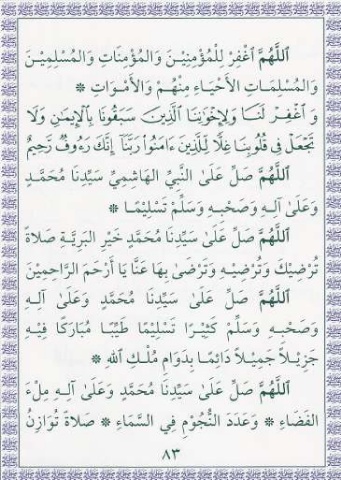 اَللَّهُمَّ اغْفِرْ لِلْمُؤْمِنِيْنَ وَالْمُؤْمِنَاتِ وَالْمُسْلِمِيْنَ
وَالْمُسْلِمَاتِ الأَحْيَاءِ مِنْهُمْ وَالأَمْوَاتِ ۞
وَاغْفِرْ لَنَا وَلِإِخْوَٰنِنَا ٱلَّذِينَ سَبَقُونَا بِٱلْإِيمَٰنِ وَلَا
تَجْعَلْ فِى قُلُوبِنَا غِلًّا لِّلَّذِينَ ءَامَنُوا۟ رَبَّنَآ إِنَّكَ رَءُوفٌ رَّحِيمٌ
اَللَّهُمَّ صَلِّ عَلَىٰ النَّبِيِّ الْهَاشِمِيِّ سَيِّدِنَا مُحَمَّدٍ
وَعَلَىٰ آلِهِ وَصَحْبِهِ وَسَلِّمْ تَسْلِيْمًا ۞
اَللَّهُمَّ صَلِّ عَلَىٰ سَيِّدِنَا مُحَمَّدٍ خَيْرِ الْبَرِيَّةِ صَلاَةً
تُرْضِيْكَ وَتُرْضِيْهِ وَتَرْضَىٰ بِهَا عَنَّا يَا أَرْحَمَ الرَّاحِمِيْنَ
اَللَّهُمَّ صَلِّ عَلَىٰ سَيِّدِنَا مُحَمَّدٍ وَعَلَىٰ آلِهِ
وَصَحْبِهِ وَسَلِّمْ كَثِيْرًا تَسْلِيْمًا طَيِّبًا مُبَارَكًا فِيْهِ
جَزِيْلاً جَمِيْلاً دَائِمًا بِدَوَامِ مُلْكِ اللهِ ۞
اَللَّهُمَّ صَلِّ عَلَىٰ سَيِّدِنَا مُحَمَّدٍ وَعَلَىٰ آلِهِ مِلْءَ
الْفَضَاءِ ۞ وَعَدَدَ النُّجُوْمِ فِي السَّمَاءِ ۞ صَلاَةً تُوَازِنُ
٨٣